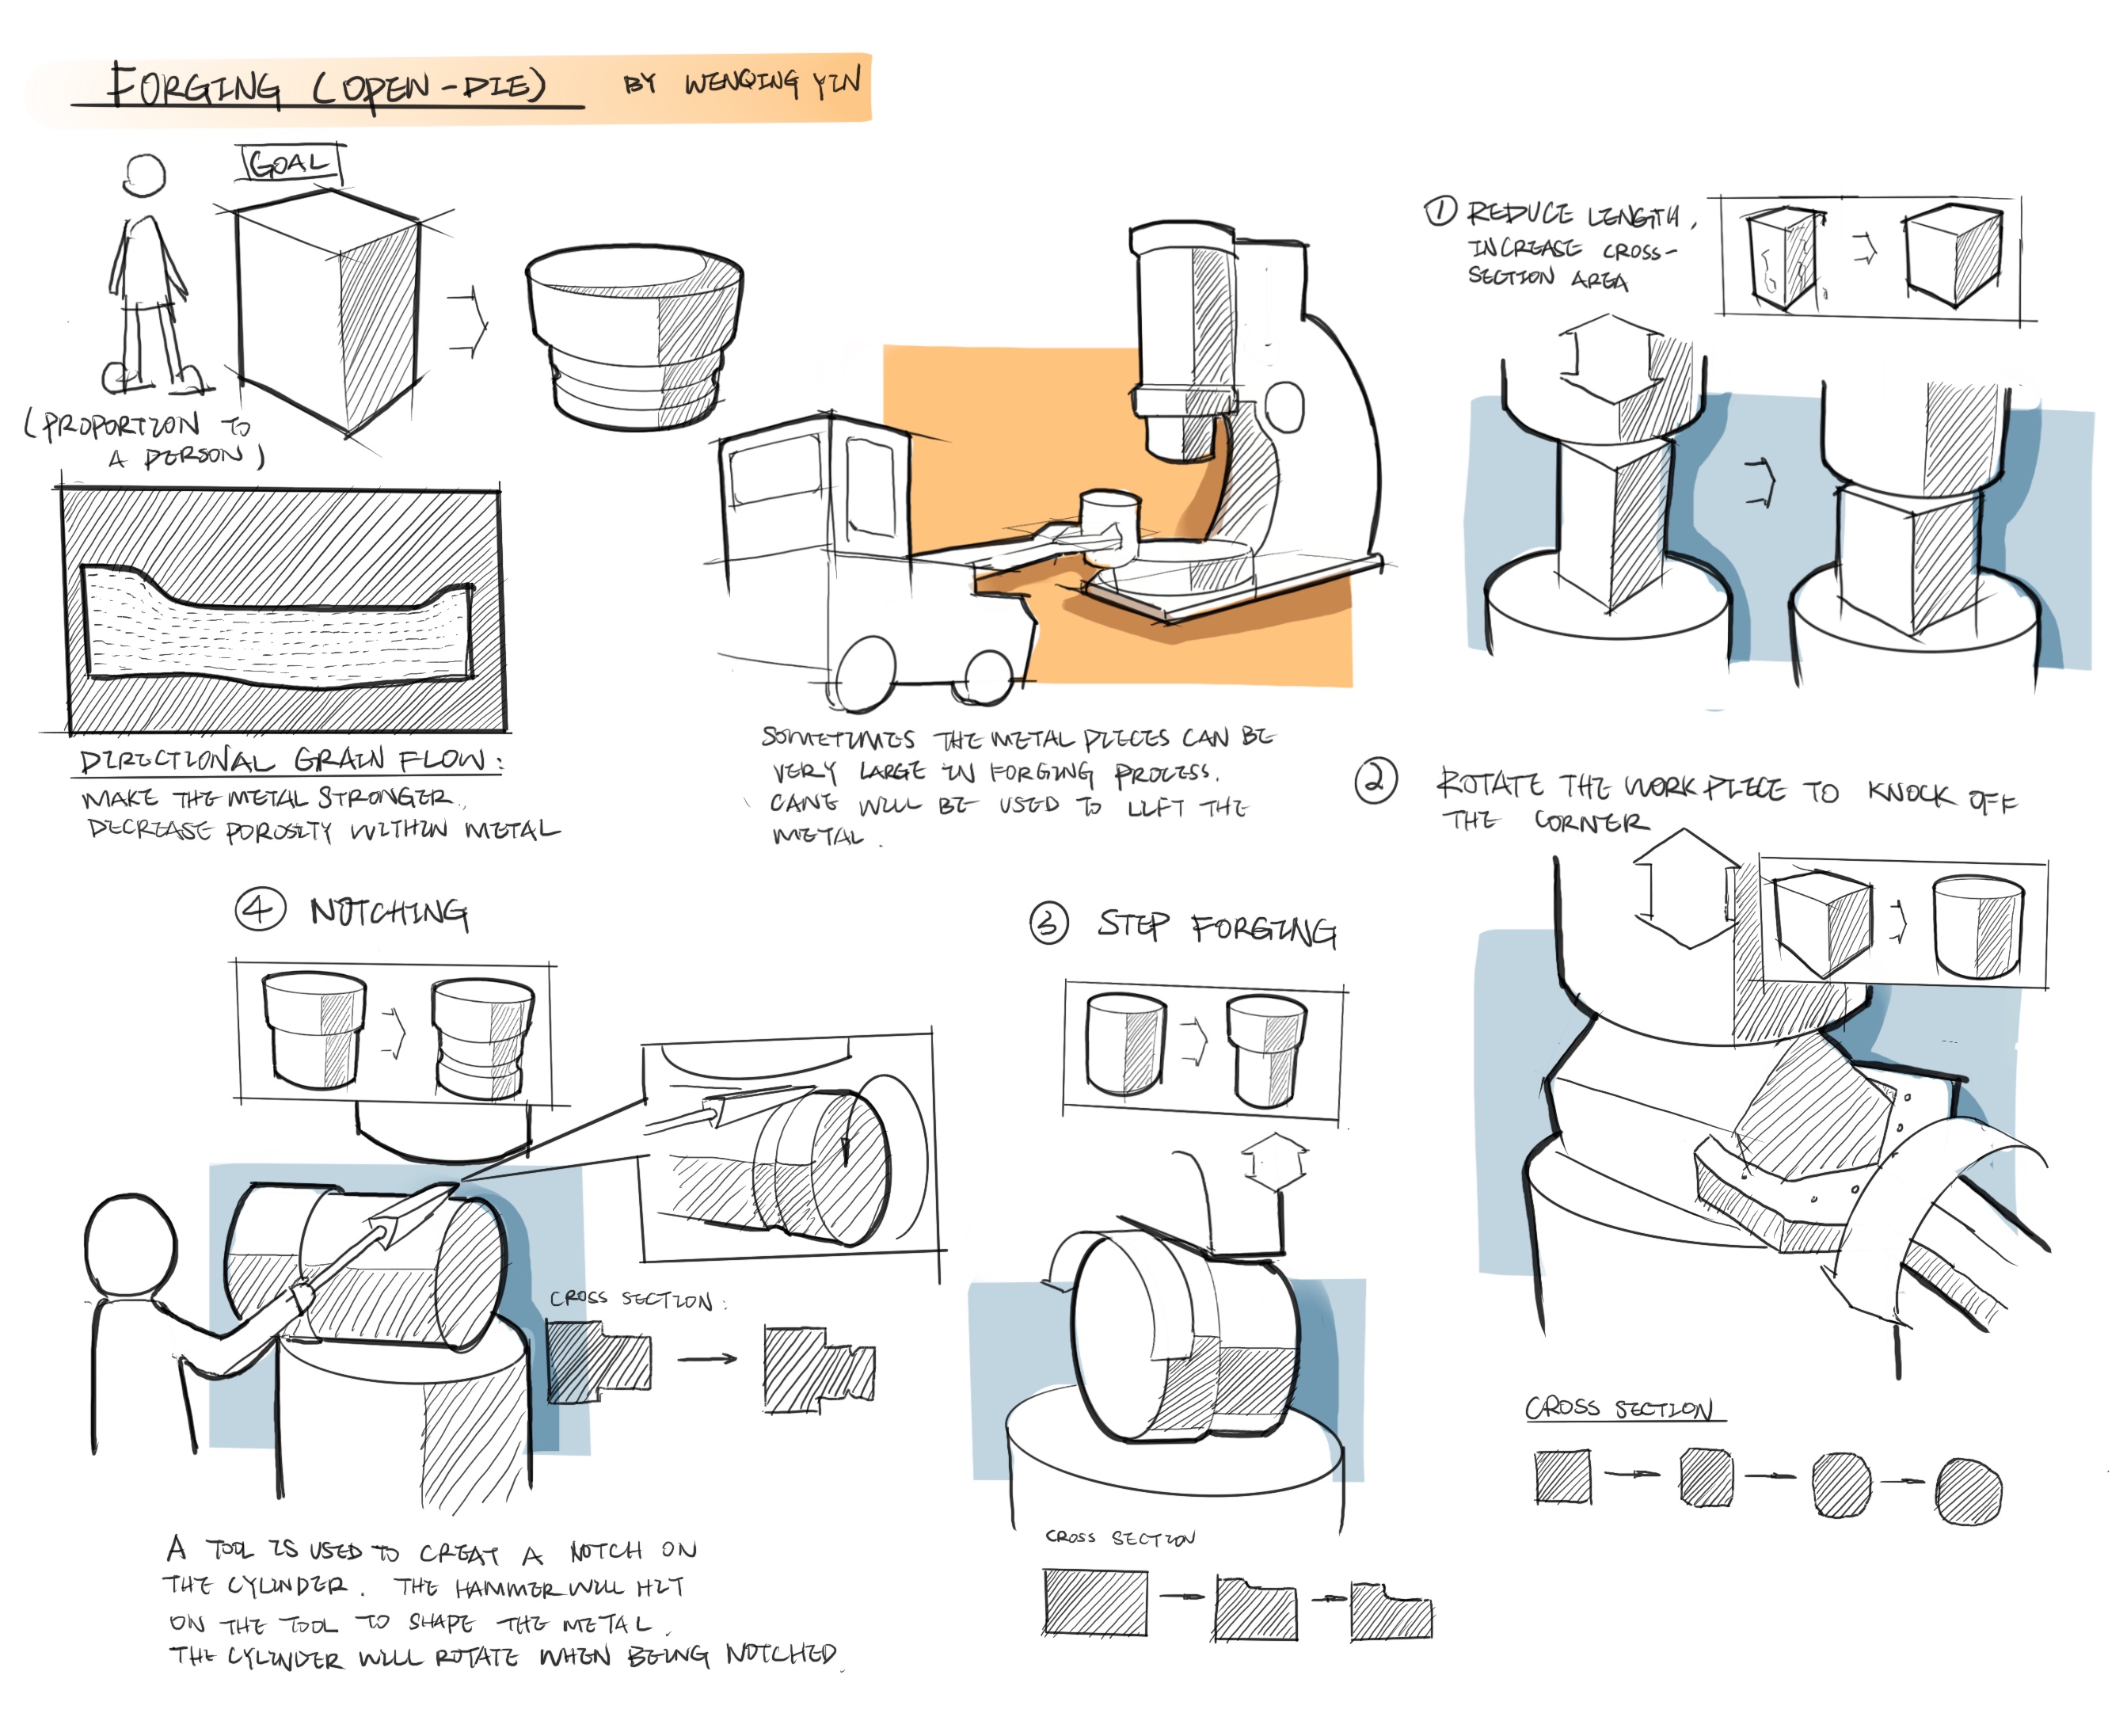 FORGING (OPEN-DIE) BY WENQING YIN
GOAL
(PROPORTION TO
A PERSON)
DIRECTIONAL GRAIN FLOW:
MAKE THE METAL STRONGER.
DECREASE POROSITY WITHIN METAL
SOMETIMES THE METAL PIECES CAN BE
VERY LARGE IN FORGING PROCESS.
CANE WILL BE USED TO LIFT THE
METAL.
① REDUCE LENGTH,
INCREASE CROSS-
SECTION AREA
② ROTATE THE WORK PIECE TO KNOCK OFF
THE CORNER
CROSS SECTION
③ STEP FORGING
CROSS SECTION
④ NOTCHING
CROSS SECTION:
A TOOL IS USED TO CREAT A NOTCH ON
THE CYLINDER. THE HAMMER WILL HIT
ON THE TOOL TO SHAPE THE METAL.
THE CYLINDER WILL ROTATE WHEN BEING NOTCHED.